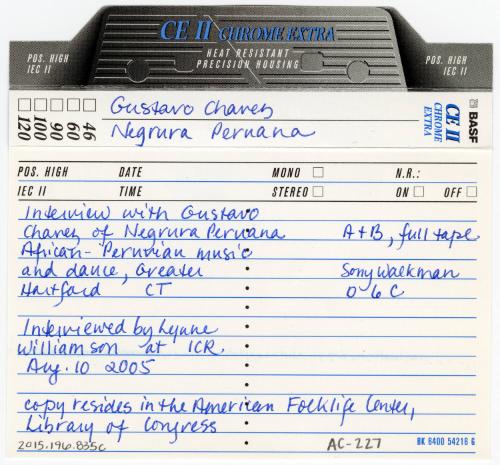 CE II CHROME EXTRA
HEAT RESISTANT
PRECISION HOUSING
POS. HIGH
IEC II
POS. HIGH
IEC II
46
60
90
100
120
Gustavo Chavez
Negrura Peruana
CE II
CHROME
EXTRA
BASF
POS. HIGH DATE MONO N.R.:
IEC II TIME STEREO ON OFF
Interview with Gustavo
Chavez of Negrura Peruana A+B, full tape
African-Peruvian music
and dance, Greater Sony Walkman
Hartford CT D6C
Interviewed by Lynne
Williamson at ICR.
Aug. 10 2005
copy resides in the American Folklife Center,
Library of Congress
2015.196.835c AC-227 BK 6400 54216 G